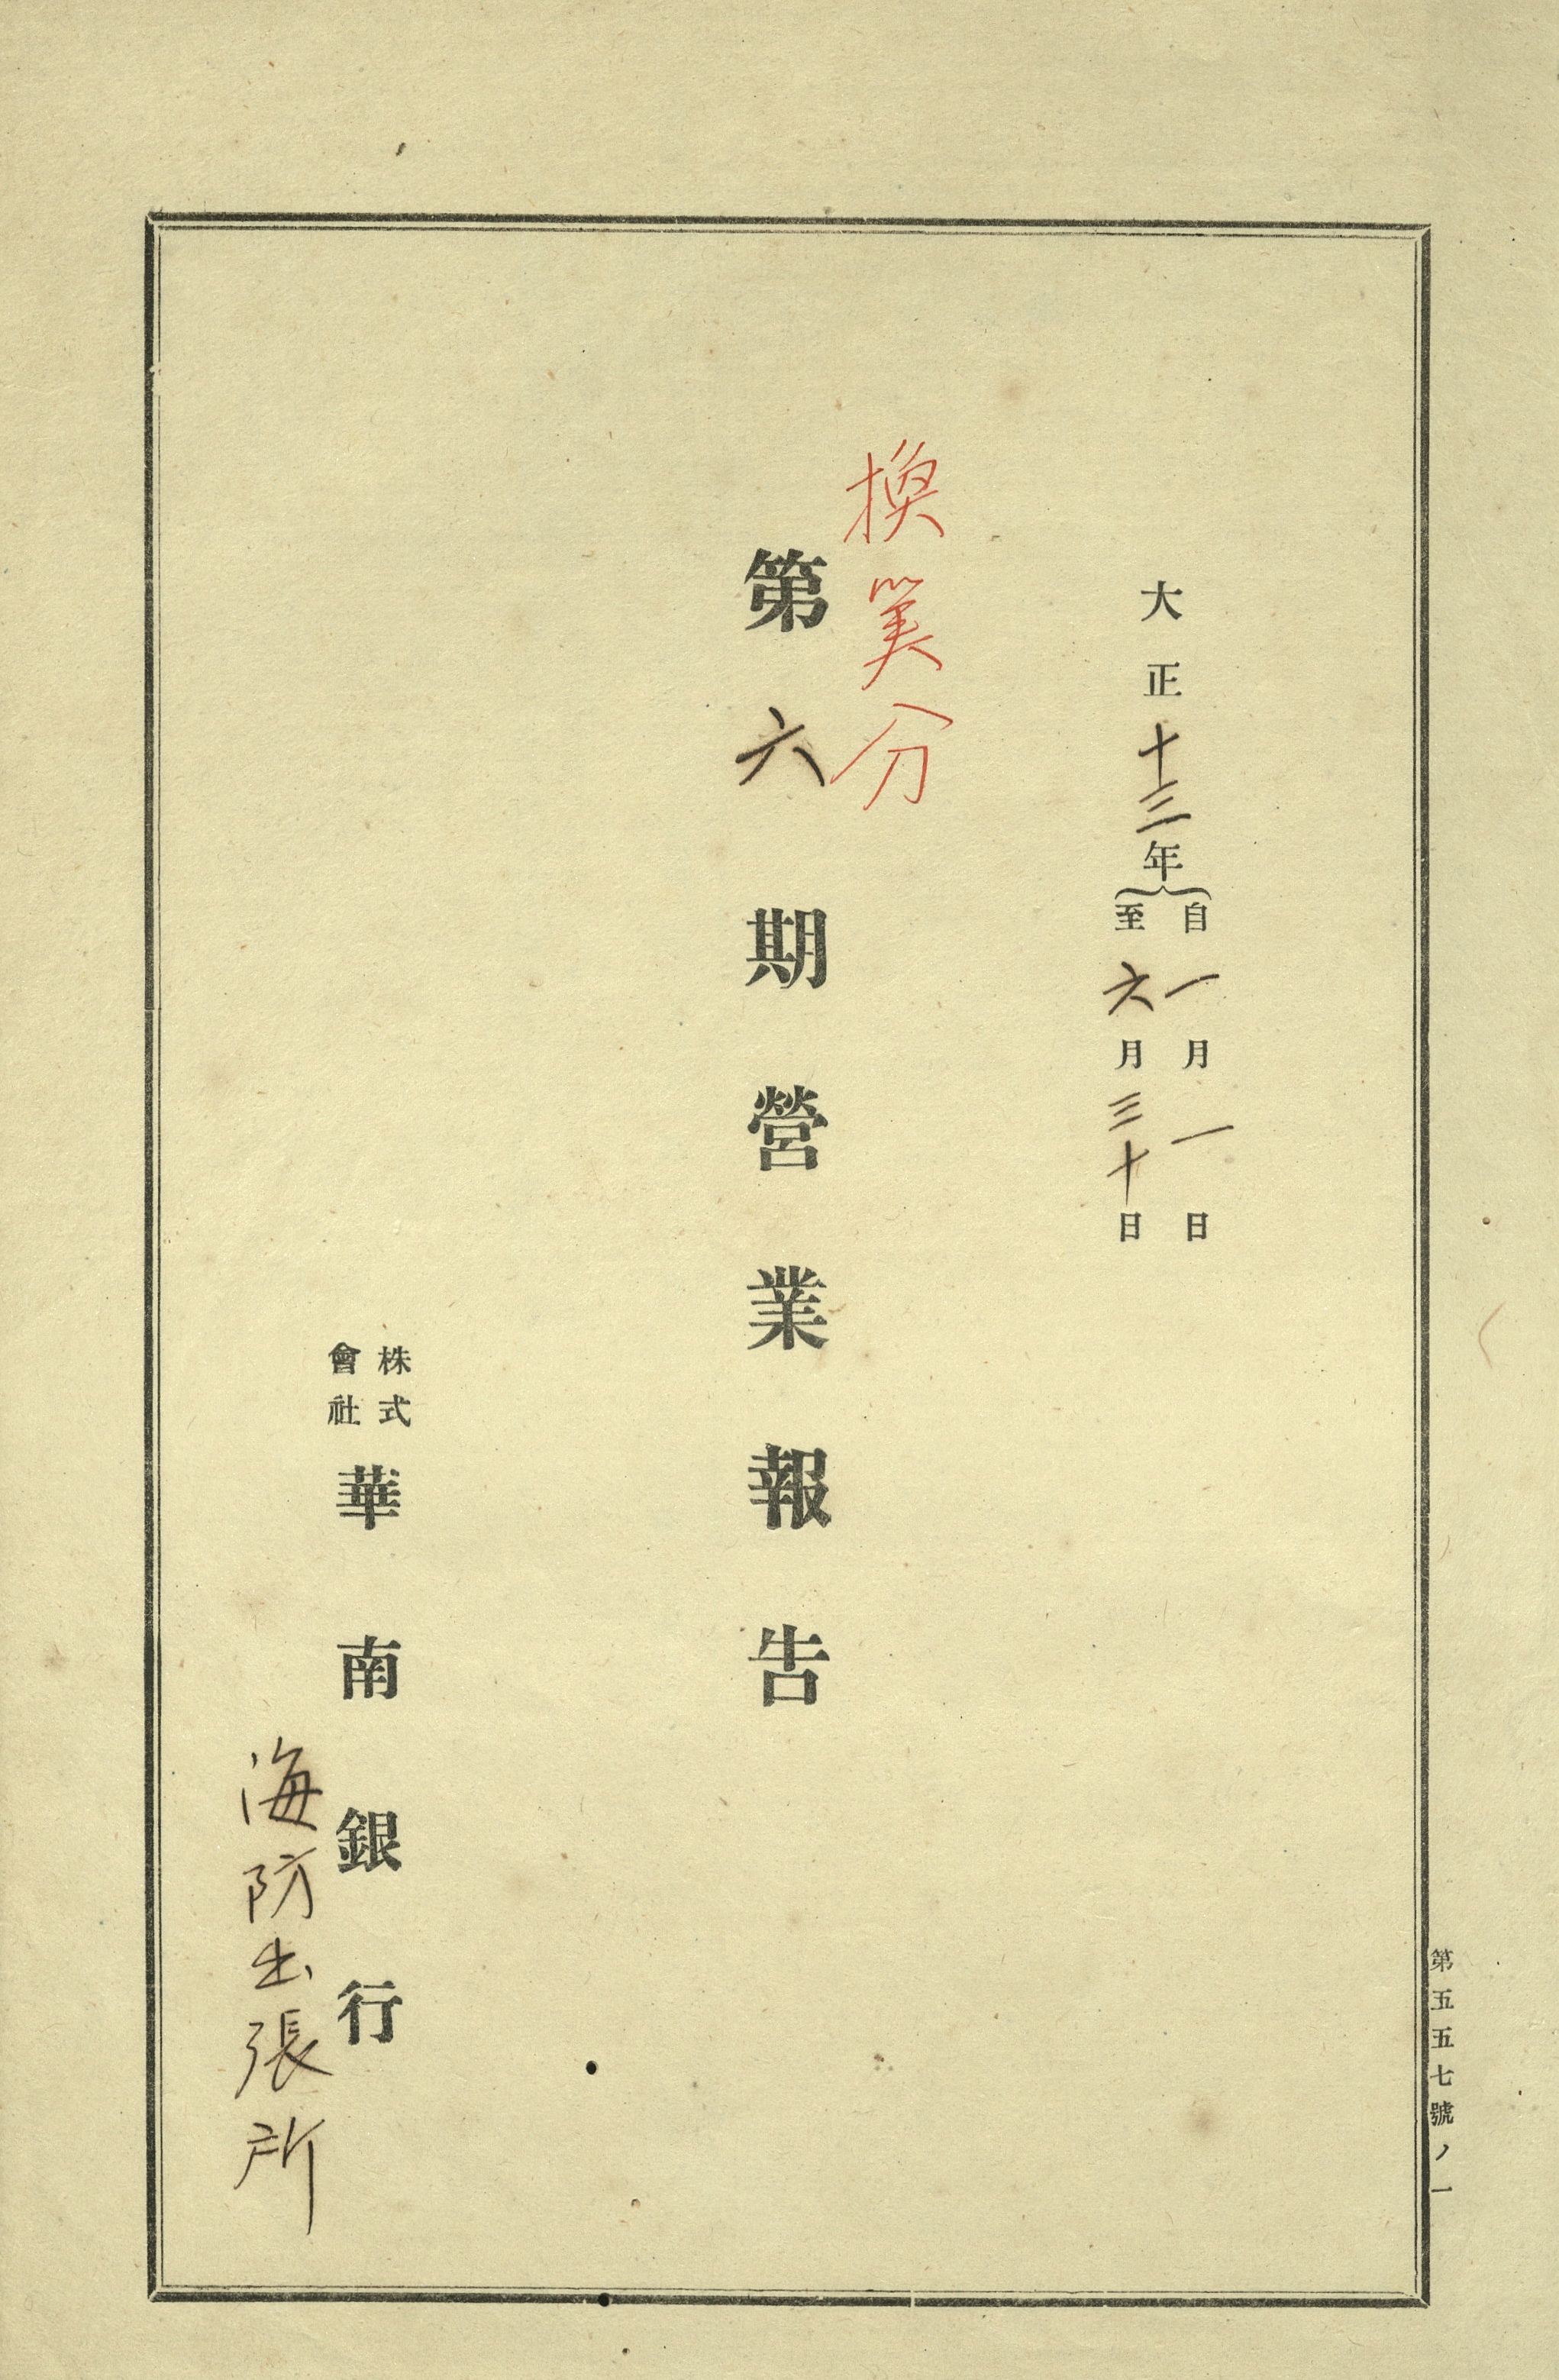 大正十三年自一月一日
至六月三十日
換算分
第六期營業報告
株式
會社
華南銀行
海防出張所
第五五七號ノ一